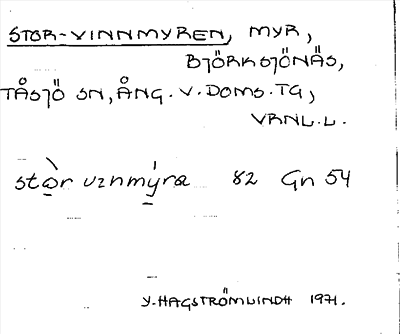 STOR-VINNMYREN, MYR,
BJÖRKSJÖNÄS,
TÅSJÖ SN, ÅNG. V. DOMS. TG,
VRNL.L.
stò̱r vɪnmý̱ra 82 Gn 54
Y. HAGSTRÖM LINDH 1971.